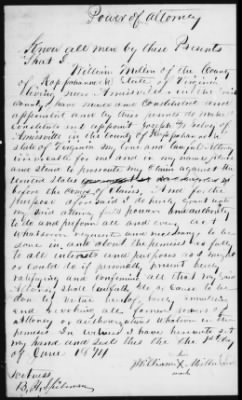 Power of Attorney
Know all men by these Presents
That I
William Miller of the County
of Rappahannock State of Virginia
living near Amissville in the said
County, have made and Constituted and
appointed and by these presents do make
Constitute and appoint Joseph D.
Amissville in the County of Rappahannock
State of Virginia my true and lawful Attorney
irrevocable for me and in my name, place
and stead to prosecute my Claim against the
United States
before the Coms of Claims, And for the
purpose aforesaid I do hereby grant unto
my said attorney full power and authority
to do and perform all and every act
whatsoever requisite and necessary to be
done in and about the premises as fully
to all intents and purposes as might
or could do if personally present hereby
ratifying and confirming all that my said
Attorney shall lawfully do or cause to be
done by virtue hereof, hereby
revoking all former powers of
Attorney or authorization whatever in the
premises. In witness I have hereunto set
my hand and seal this the 1st day
of June 1874
his
William X Miller
mark
Witness